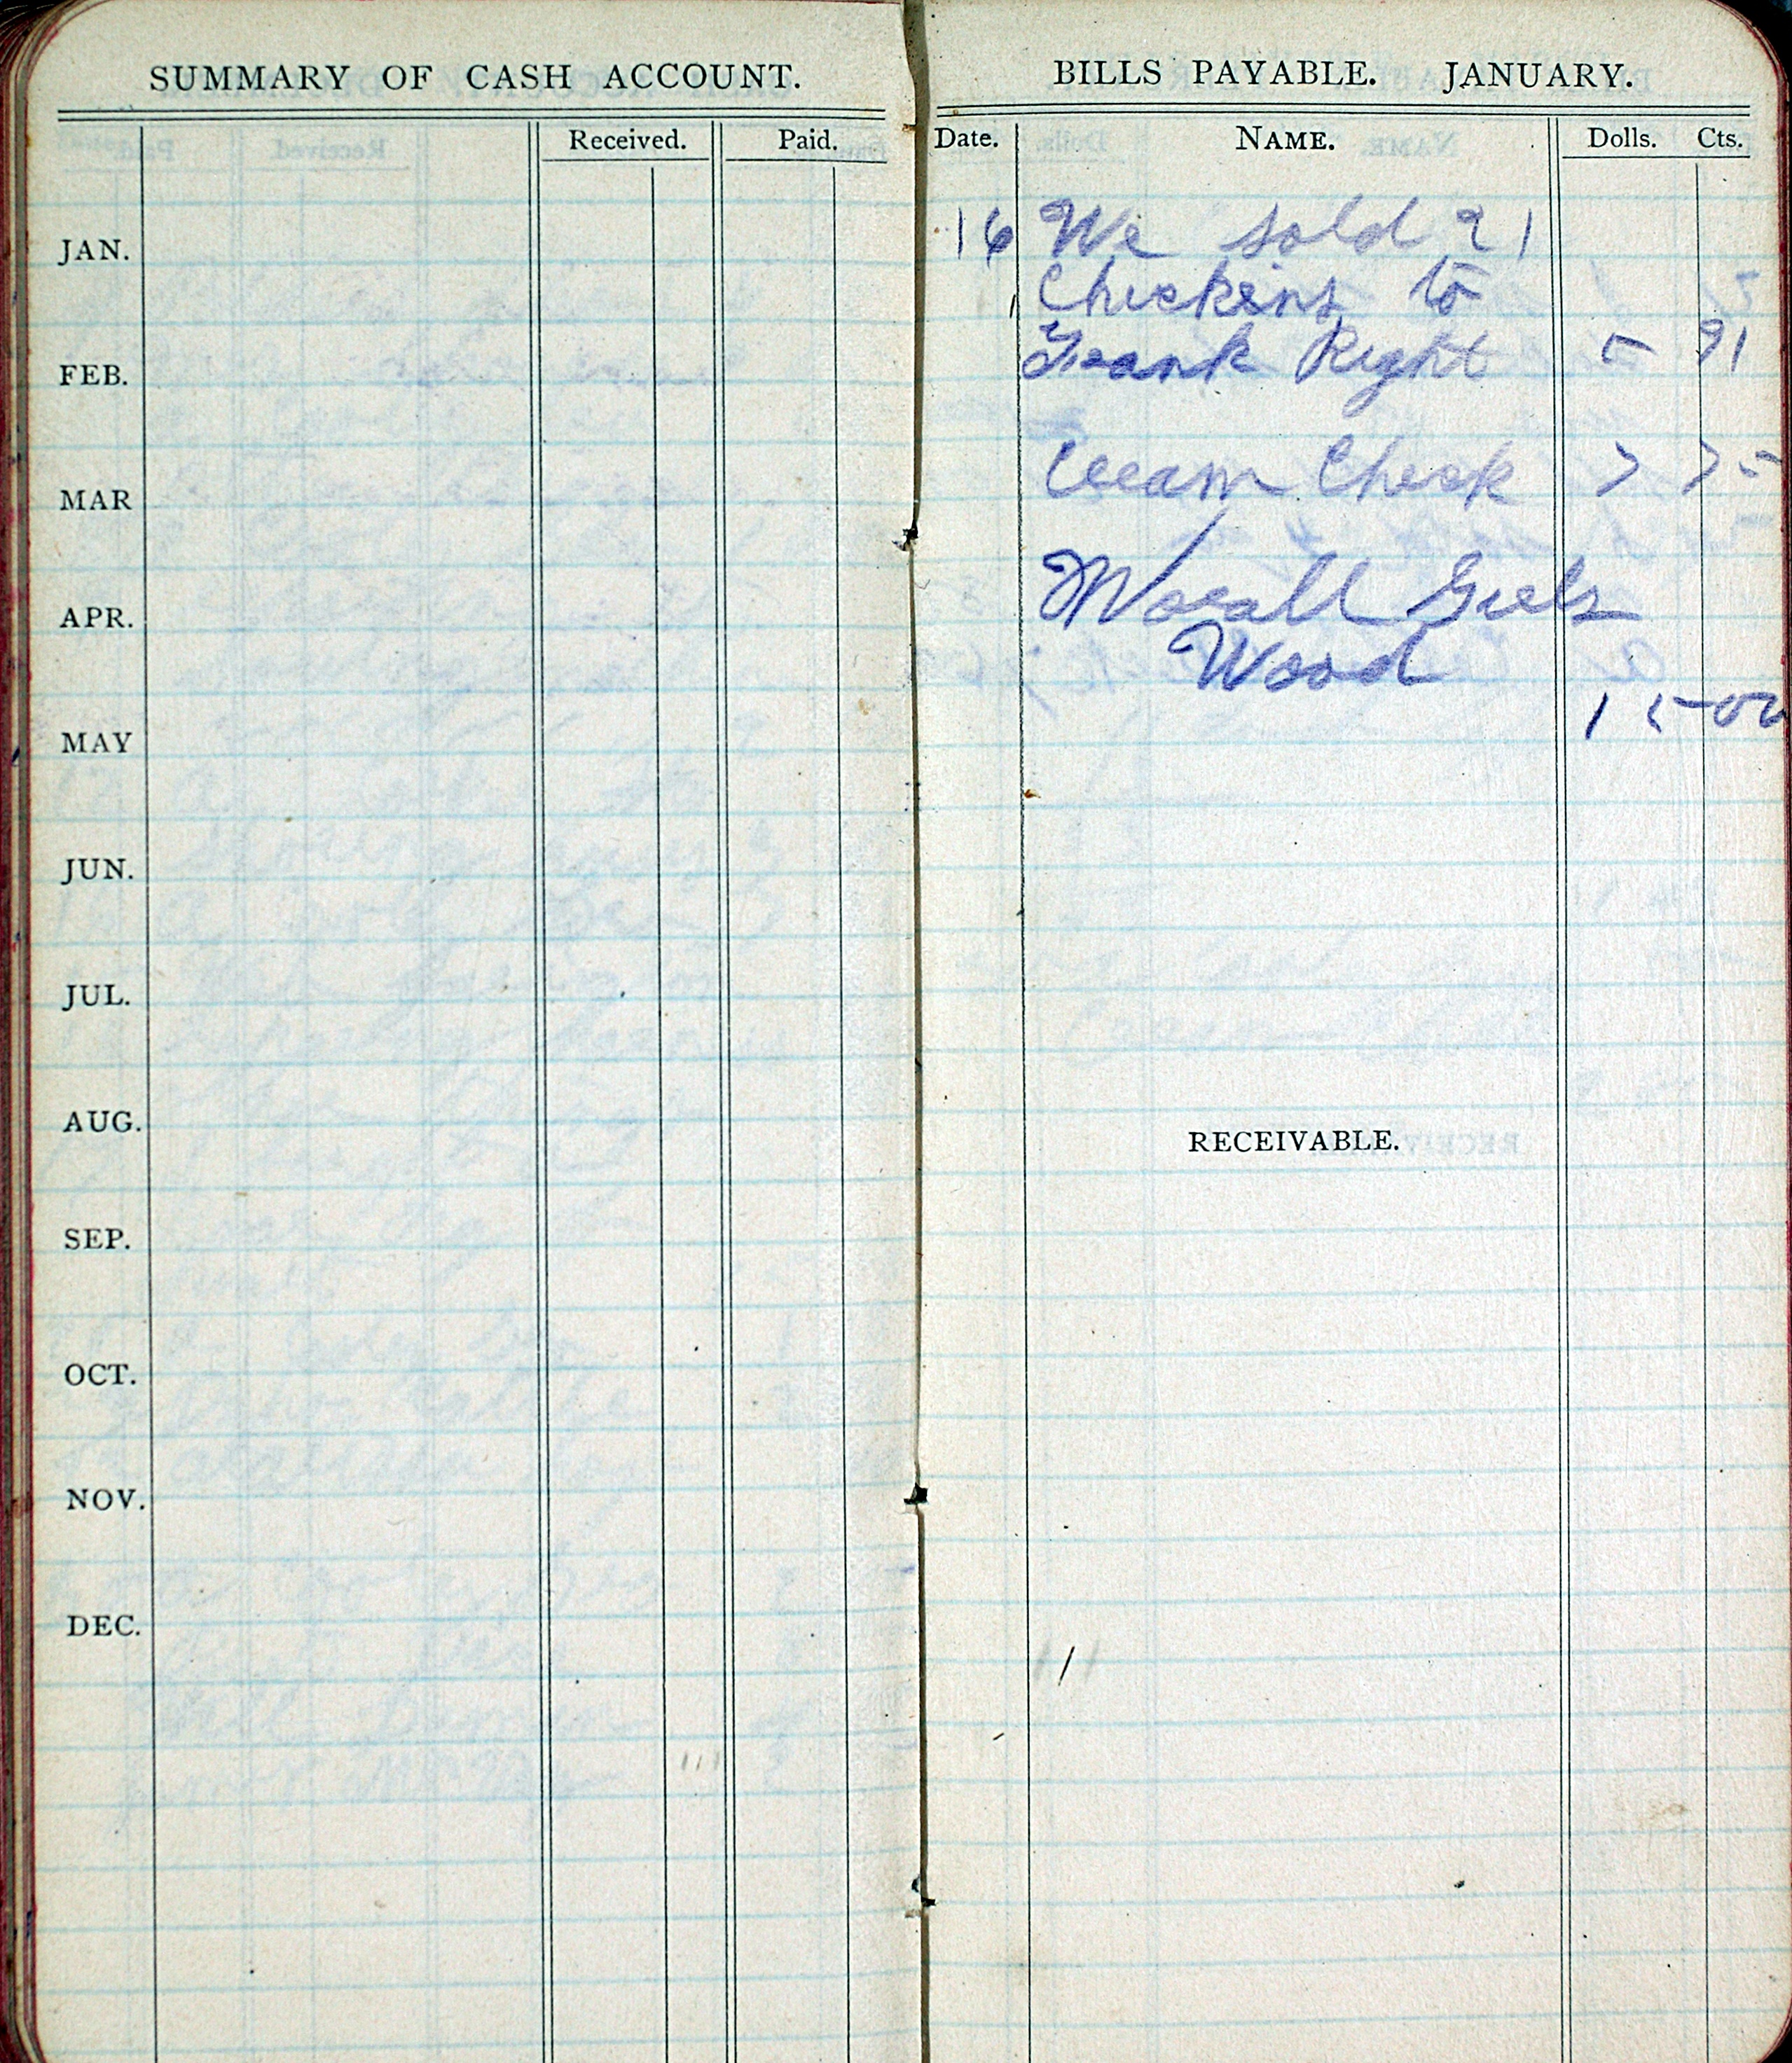 SUMMARY OF CASH ACCOUNT.
Received. Paid.
JAN.
FEB.
MAR
APR.
MAY
JUN.
JUL.
AUG.
SEP.
OCT.
NOV.
DEC.
BILLS PAYABLE. JANUARY.
Date. NAME. Dolls. Cts.
16 We sold 21
Chickens to
Frank Right 5 91
Cream Check 7 75
Worall Girls
Wood
15 00
RECEIVABLE.